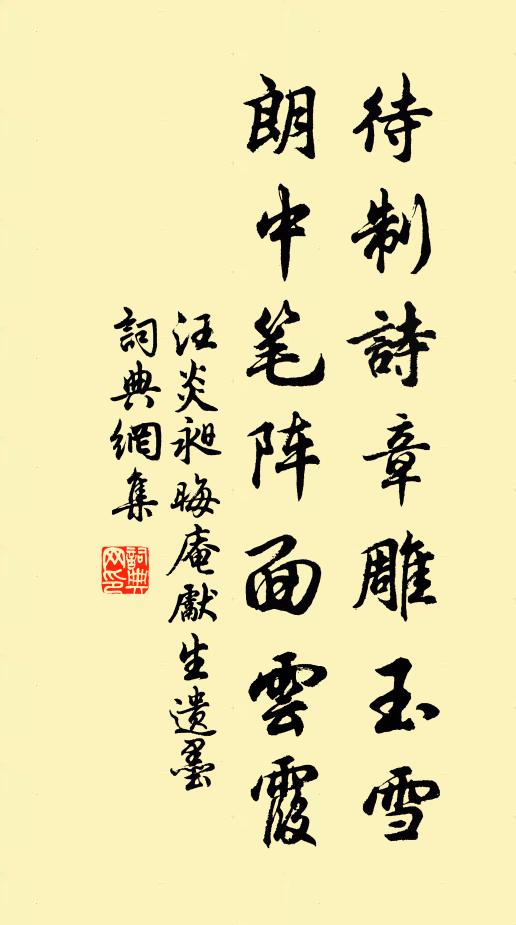 待制詩章雕玉雪
朗中笔阵面雲霞
汪炎昶晦庵獻生遺墨
詞典網集
詞典網印